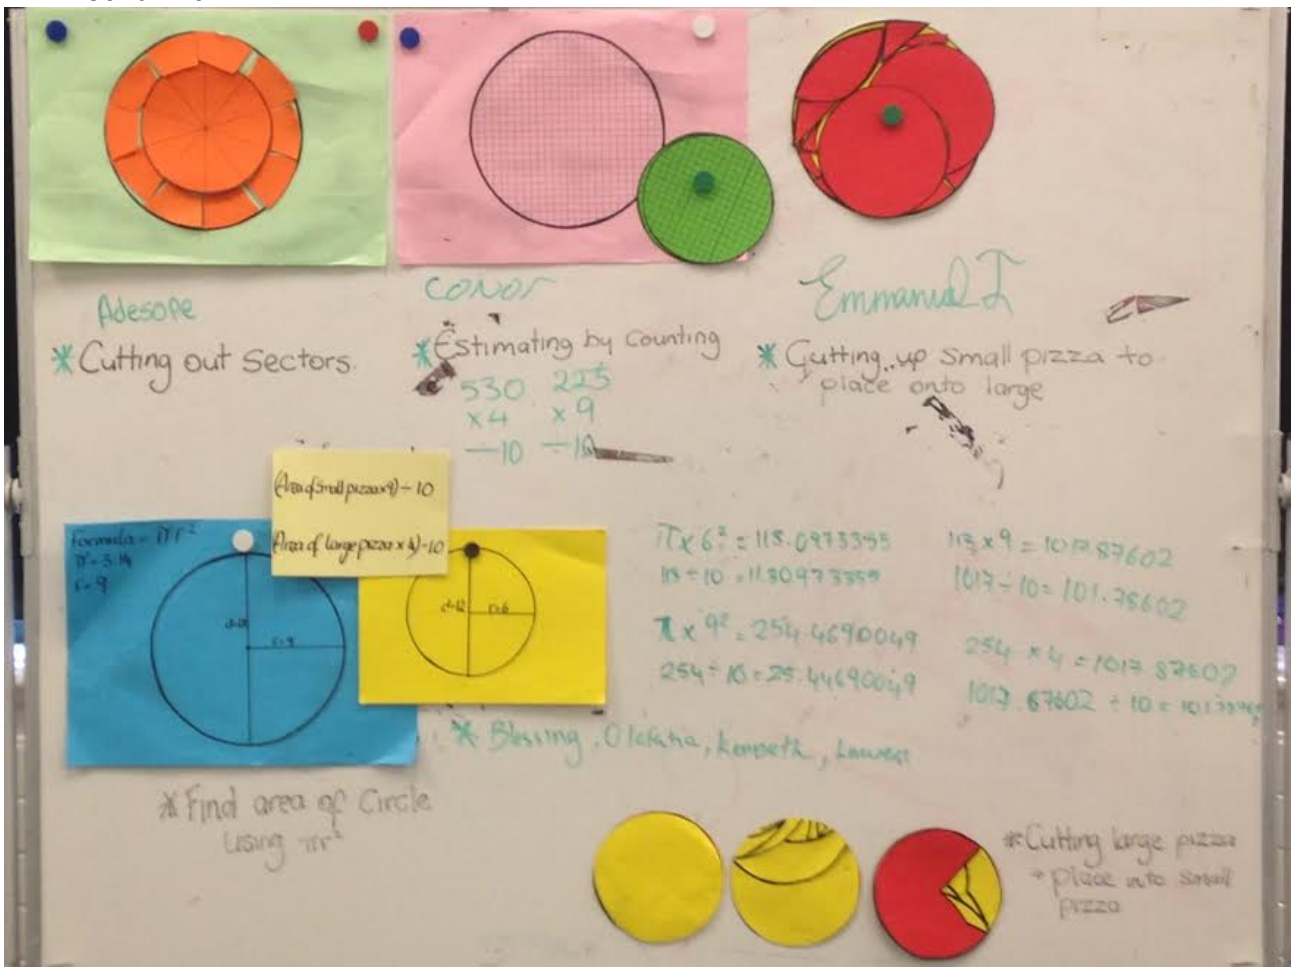 Adesope
* Cutting out Sectors.
Conor
* Estimating by Counting
530 225
x4 x9
÷10 ÷10
Emmanuel I
* Cutting up small pizza to
place onto large
(Area of Small pizza x 9) ÷ 10
(Area of large pizza x 4) ÷ 10
Formula = πr²
π = 3.14
r = 9
r=9
d=12
r=6
* Find area of Circle
Using πr²
π x 6² = 113.0973355
113 ÷ 10 = 11.30973355
π x 9² = 254.4690049
254 ÷ 10 = 25.44690049
113 x 9 = 1017.87602
1017 ÷ 10 = 101.78602
254 x 4 = 1017.87602
1017.87602 ÷ 10 =
* Blessing, Kenneth,
* Cutting large pizza
+ place into small
pizza